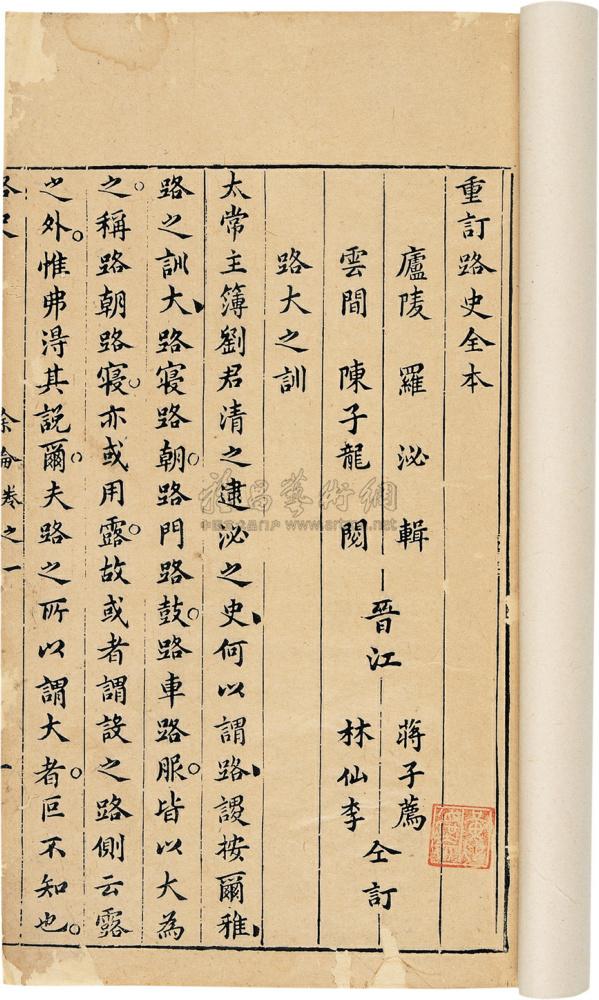 重訂路史全本
廬陵 羅泌 輯
雲間 陳子龍 閱
晉江
蔣子薦
林仙李
仝訂
路大之訓
太常主簿劉君清之逮泌之史何以謂路謖按爾雅
路之訓大路寢路朝路門路鼓路車路服皆以大為
之稱路朝路寢亦或用露故或者謂設之路側云露
之外惟弗淂其説爾夫路之所以謂大者叵不知也
路史 余論卷之一 一